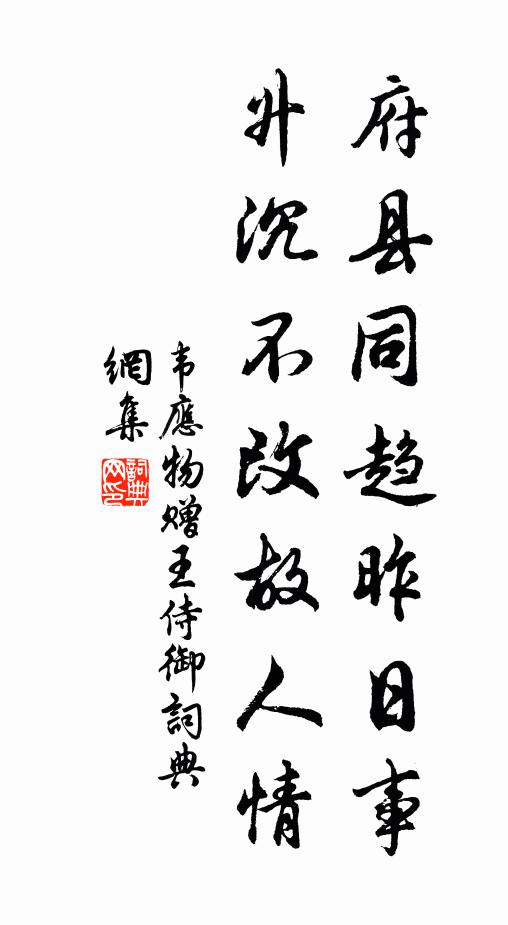 府县同趋昨日事
升沉不改故人情
韦應物赠王侍御詞典
網集
詞典网印